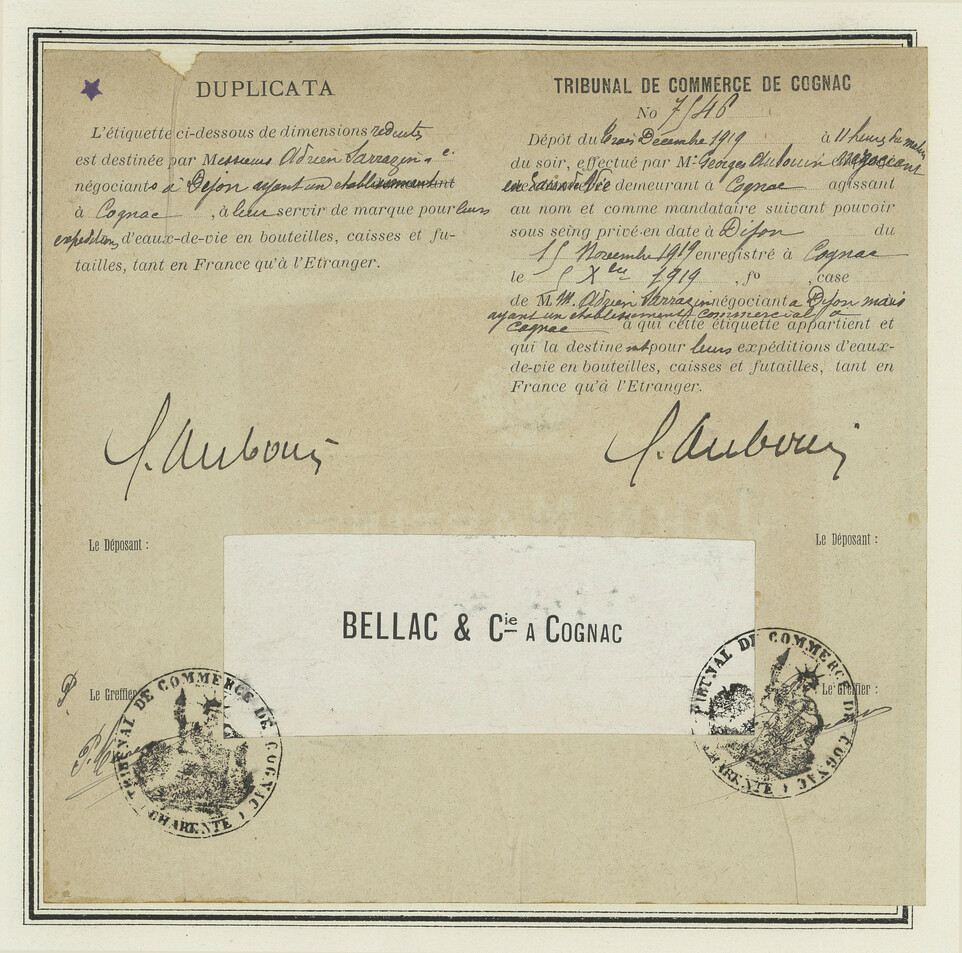 DUPLICATA
L'étiquette ci-dessous de dimensions reduites
est destinée par Messieurs Adrien Sarrazin & Cie
négociants à Dijon ayant un etablissement
à Cognac , à leur servir de marque pour leurs
expeditions d'eaux-de-vie en bouteilles, caisses et fu-
tailles, tant en France qu'à l'Etranger.
G. Aubouin
Le Déposant :
Le Greffier
TRIBUNAL DE COMMERCE DE COGNAC
(CHARENTE)
TRIBUNAL DE COMMERCE DE COGNAC
No 7546
Dépôt du trois Décembre 1919 à 11 heures du matin
du soir, effectué par Mr Georges Aubouin négociant
demeurant à Cognac agissant
au nom et comme mandataire suivant pouvoir
sous seing privé en date à Dijon du
15 Novembre 1919 enregistré à Cognac
le 5 Xbre 1919 , fo , case
de M.M. Adrien Sarrazin négociant a Dijon mais
ayant un etablissement commercial a
Cognac à qui cette étiquette appartient et
qui la destinent pour leurs expéditions d'eaux-
de-vie en bouteilles, caisses et futailles, tant en
France qu'à l'Etranger.
G. Aubouin
Le Déposant :
BELLAC & Cie A COGNAC
Le Greffier :
TRIBUNAL DE COMMERCE DE COGNAC
(CHARENTE)